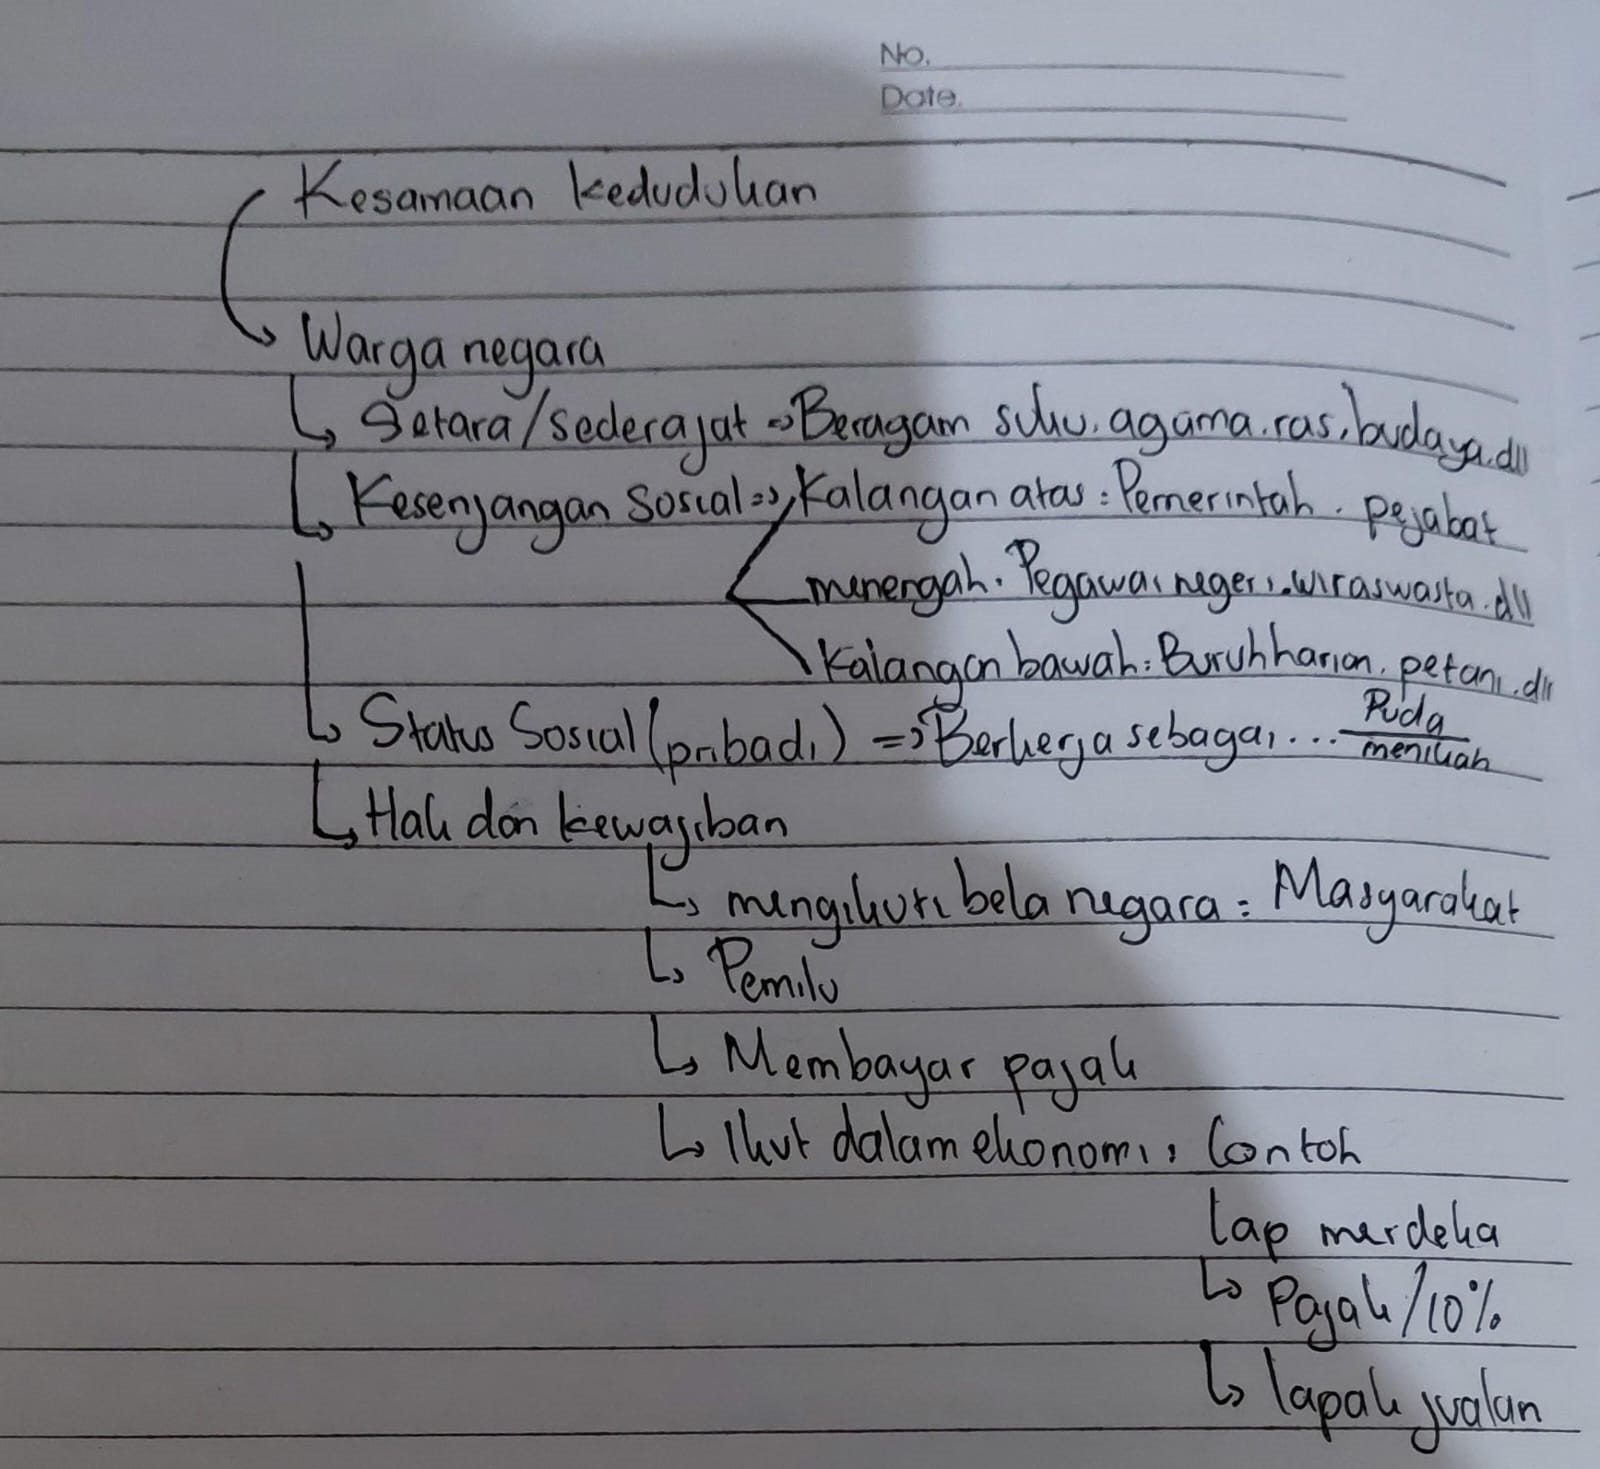 No.
Date.
Kesamaan kedudukan
Warga negara
Setara/sederajat => Beragam suku, agama, ras, budaya, dll
Kesenjangan Sosial => Kalangan atas : Pemerintah, pejabat
menengah. Pegawai negeri, wiraswasta, dll
Kalangan bawah : Buruh harian, petani, dll
Status Sosial (pribadi) => Berkerja sebagai ... Duda
menikah
Hak dan kewajiban
mengikuti bela negara : Masyarakat
Pemilu
Membayar pajak
Ikut dalam ekonomi, Contoh
Lap merdeka
Pajak/10%
lapak jualan